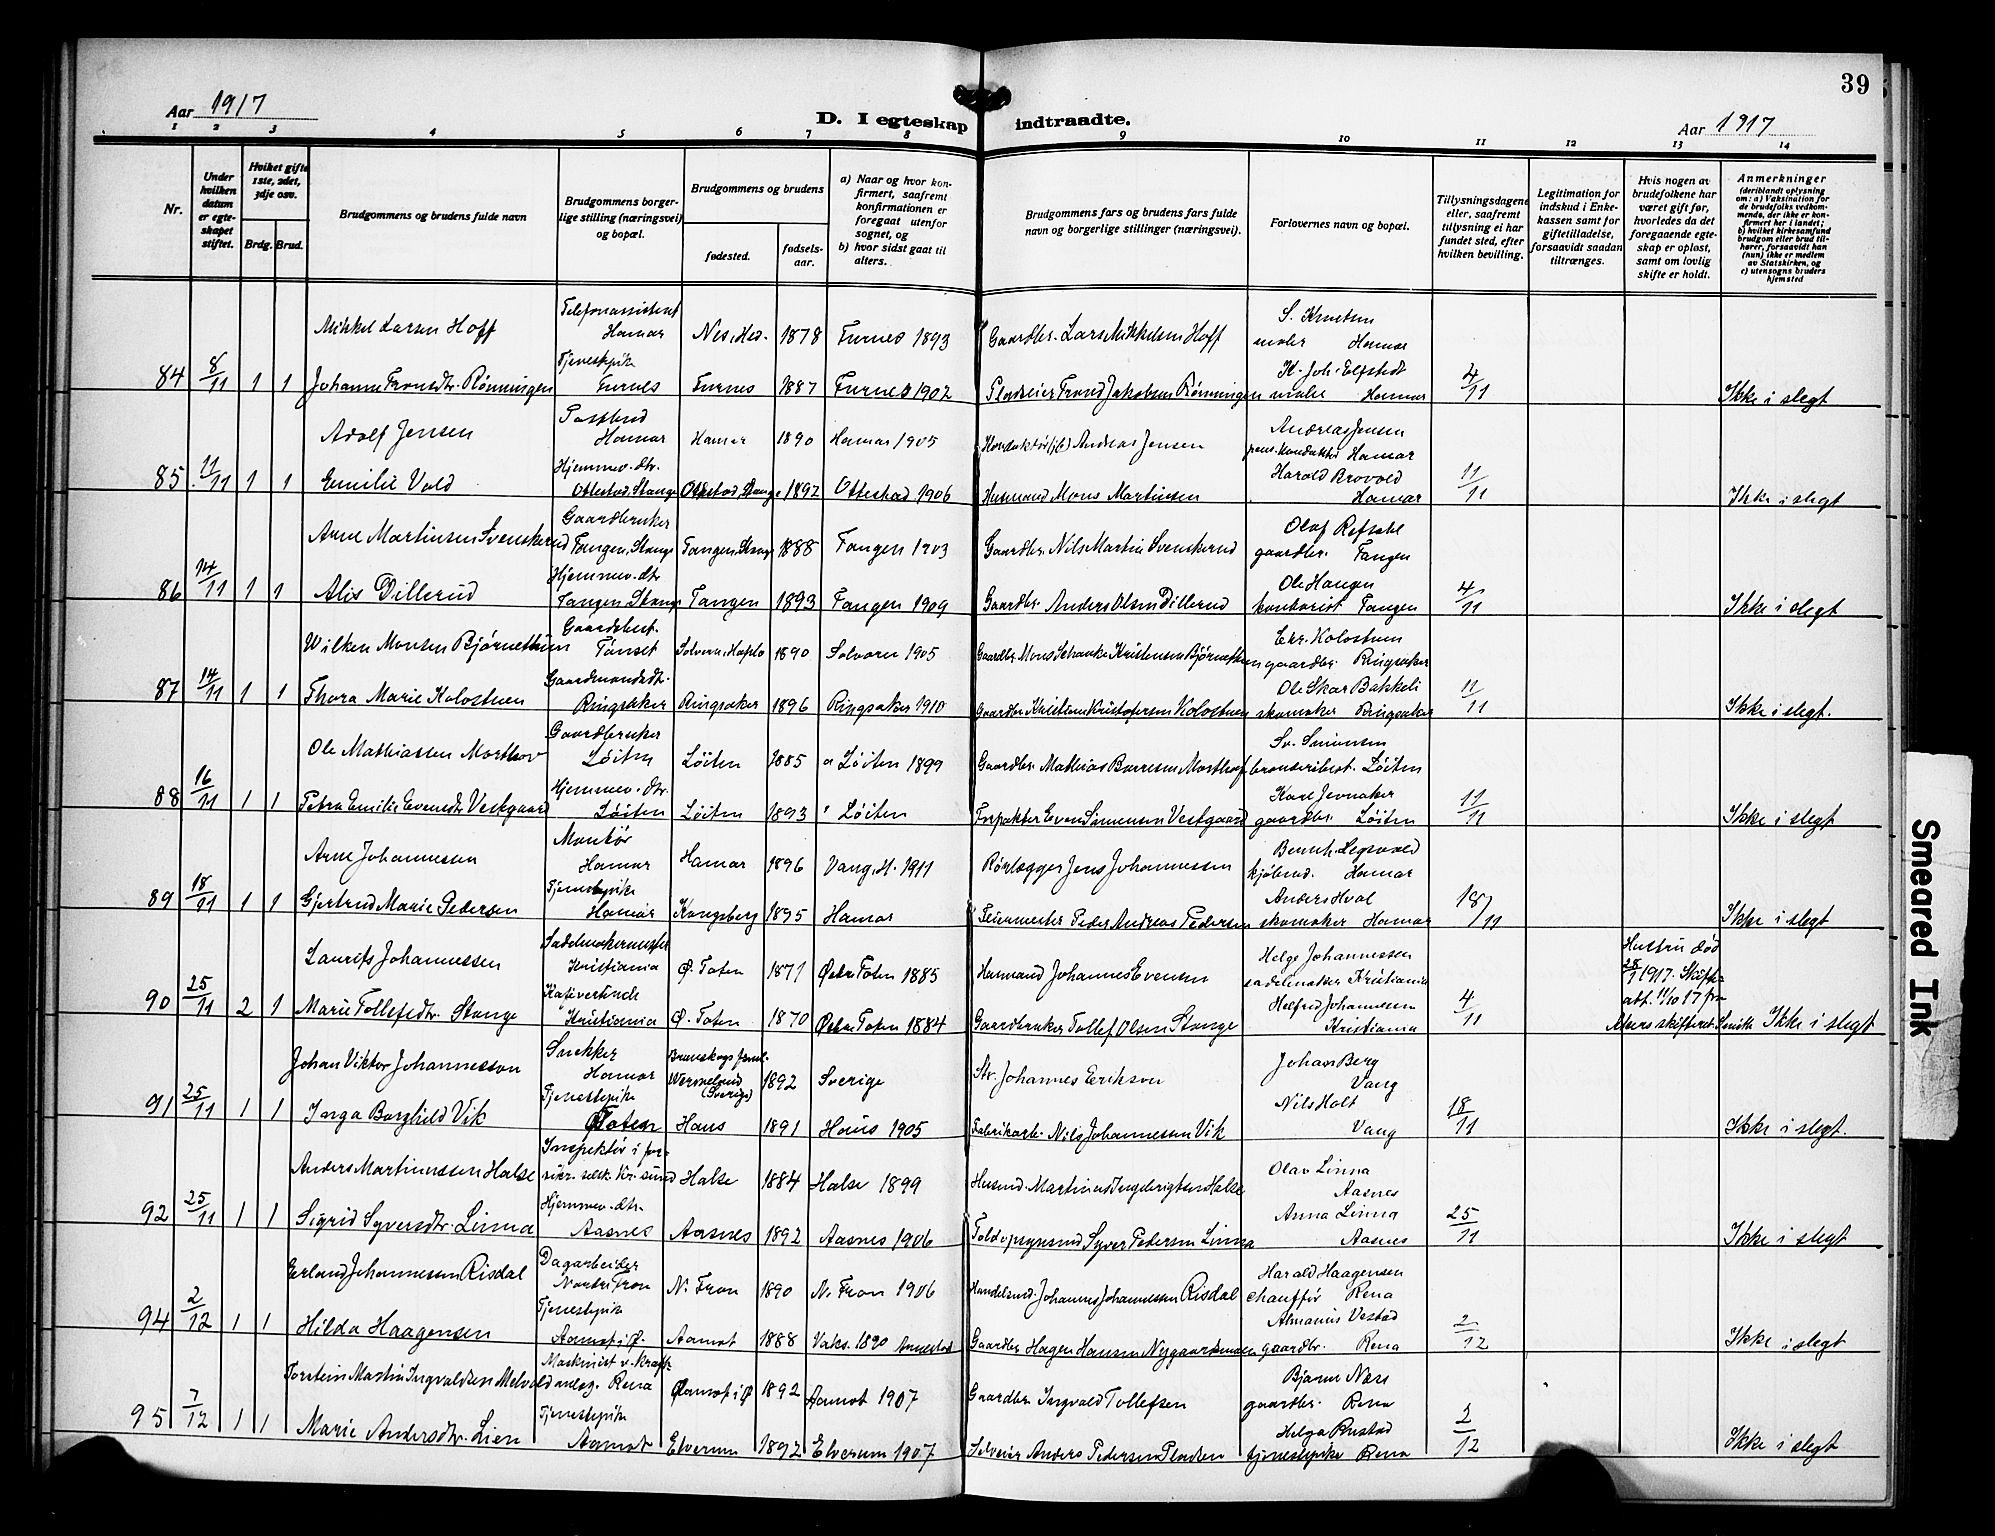 39
Aar 1917
D. I egteskap indtraadte.
Aar 1917
1 2 3 4 5 6 7 8 9 10 11 12 13 14
Nr.
Under hvilken datum er egteskapet stiftet.
Hviket gifte 1ste, 2det, 3dje osv.
Brdg. Brud.
Brudgommens og brudens fulde navn
Brudgommens borgerlige stilling (næringsvei) og bopæl.
Brudgommens og brudens
fødested.
fødselsaar.
a) Naar og hvor konfirmert, saafremt konfirmationen er foregaat utenfor sognet, og
b) hvor sidst gaat til alters.
Brudgommens fars og brudens fars fulde navn og borgerlige stillinger (næringsvei).
Forlovernes navn og bopæl.
Tillysningsdagene eller, saafremt tillysning ei har fundet sted, efter hvilken bevilling.
Legitimation for indskud i Enkekassen samt for giftetilladelse, forsaavidt saadan tiltrænges.
Hvis nogen av brudefolkene har været gift før, hvorledes da det foregaaende egteskap er opløst, samt om lovlig skifte er holdt.
Anmerkninger
(deriblandt oplysning om: a) Vaksination for de brudefolks vedkommende, der ikke er konfirmert her i landet; b) hvilket kirkesamfund brudgom eller brud tilhører, forsaavidt han (hun) ikke er medlem av Statskirken, og c) utensogns bruders hjemsted
Mikkel Larsen Hoff Telefonassistent Hamar Nes, Hed. 1878 Furnes 1893 Gaardbr. Lars Mikkelsen Hoff S. Knutsen maler Hamar
84 8/11 1 1 Johanne Tronsdtr. Rønningen Tjenestepik Furnes Furnes 1887 Furnes 1902 Pladseier Trond Jakobsen Rønningen K. Joh. Elfstedt maler Hamar 4/11 Ikke i slegt
Adolf Jensen Postbud Hamar Hamar 1890 Hamar 1905 Andreas Jensen Andreas Jensen pens. konduktør Hamar
85 11/11 1 1 Emilie Vold Hjemmev. dtr. Ottestad, Stange Ottestad Stange 1892 Ottestad 1906 Husmand Mons Martinsen Harald Brovold Hamar 11/11 Ikke i slegt
Arne Martinsen Svenskerud Gaardbruker Tangen, Stange Tangen, Stange 1888 Tangen 1903 Gaardbr. Nils Martin Svenskerud Olaf Refsahl gaardbr. Tangen
86 14/11 1 1 Alis Dillerud Hjemmev. dtr Tangen Stange Tangen 1893 Tangen 1909 Gaardbr. Anders Olsen Dillerud Ole Haugen kontorist Tangen 4/11 Ikke i slegt
Wilken Monsen Bjørnethun Gaardsbest. Tønset Solvorn, Hafslo 1890 Solvorn 1905 Gaardbr. Mons Schanke Kristensen Bjørnethun Chr. Kolostuen gaardbr. Ringsaker
87 14/11 1 1 Thora Marie Kolostuen Gaardmandsdt. Ringsaker Ringsaker 1896 Ringsaker 1910 Gaardbr. Kristian Kristofersen Kolostuen Ole Skar Bakkeli skomaker Ringsaker 11/11 Ikke i slegt.
Ole Mathiassen Morthov Gaardbruker Løiten Løiten 1885 a Løiten 1899 Gaardbr. Mathias Sv. Simonsen Løiten
88 16/11 1 1 Petra Emilie Evensdtr Vestgaard Hjemmev. dtr. Løiten Løiten 1893 " Løiten Even Simensen Vestgaard Karl Jevnaker gaardbr. Løiten 11/11 Ikke i slegt
Arne Johannessen Montør Hamar Hamar 1896 Vang, H. 1911 Rørlægger Jens Johannessen Hamar
89 18/11 1 1 Gjertrud Marie Pedersen Tjenestepike Hamar Kongsberg 1895 Hamar Feiermester Peder Andreas Pedersen Anders Hval skomaker Hamar 18/11 Ikke i slegt
Laurits Johannessen Sadelmakermester Kristiania Ø. Toten 1871 Østre Toten 1885 Husmand Johannes Evensen Helge Johannessen sadelmaker Kristiania Hustru død 28/1 1917. Skifteatt. 11/10 17 fra Akers skifteret
90 25/11 2 1 Marie Tollefsdtr. Stange Kristiania Ø. Toten 1870 Østre Toten 1884 Gaardbruker Tollef Olsen Stange Helfrid Johannesen Kristiania 4/11 Ikke i slegt
Johan Viktor Johannesson Snekker Hamar Wermeland (Sverige) 1892 Sverige Johannes Erikson Johan Berg Vang
91 25/11 1 1 Inga Borghild Vik Tjenestepike Toten Haus 1891 Haus 1905 Fabrikarb. Nils Johannessen Vik Nils Holt Vang 18/11 Ikke i slegt.
Anders Martinussen Halse Inspektør i forsikr. selsk. Kr.sund Halse 1884 Halse 1899 Husmd. Martinus Ingebrigtsen Halse Olav Linna Aasnes
92 25/11 1 1 Sigrid Syversdtr. Linna Hjemmev. dtr. Aasnes Aasnes 1892 Aasnes 1906 Toldopsynsmd Syver Pedersen Linna Anna Linna Aasnes 25/11 Ikke i slegt
Erland Johannessen Risdal Dagarbeider Nordre Fron N. Fron 1890 N. Fron 1906 Handelsmd. Johannes Johannessen Risdal Harald Haagensen chauffør Rena
94 2/12 1 1 Hilda Haagensen Tjenestepik Aamot i Ø. Aamot 1888 Vaks. 1890 Gaardbr. Hagen Hansen Nygaardsmoen Almanus Vestad gaardbr. Rena 2/12 Ikke i slegt
Torstein Martin Ingvaldsen Melvold Maskinist v. kraftanlæg. Rena Aamot i Ø 1892 Aamot 1907 Gaardbr. Ingvald Tollefsen Bjarne Næss gaardbr. Rena
95 7/12 1 1 Marie Andersdtr. Lien Tjenestepike Aamot Elverum 1892 Elverum 1907 Selveier Anders Pedersen Pladsen Helga Rustad tjenestepike Rena 2/12 Ikke i slegt
Smeared Ink